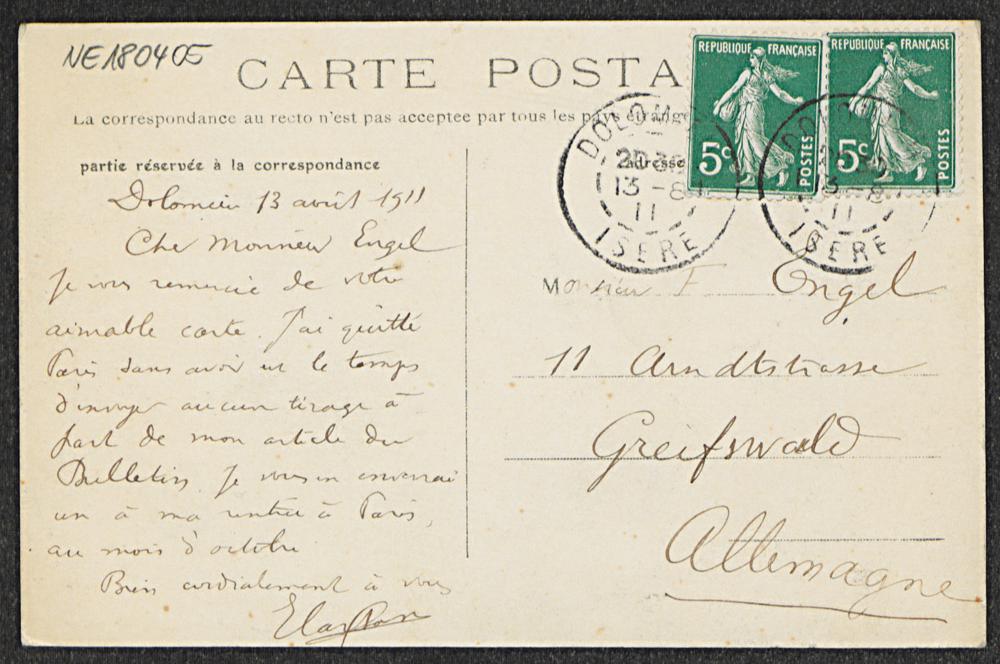 NE180405
CARTE POSTA
La correspondance au recto n'est pas acceptee par tous les pays étrange
REPUBLIQUE FRANÇAISE
5c
POSTES
REPUBLIQUE FRANÇAISE
5c
POSTES
DOLOM
20 30
13 - 8
11
ISERE
13 - 8
11
ISERE
partie réservée à la correspondance
adresse
Dolomieu 13 août 1911
Cher Monsieur Engel
Je vous remercie de votre
aimable carte. J'ai quitté
Paris sans avoir eu le temps
d'envoyer aucun tirage à
part de mon article du
Bulletin. Je vous en enverrai
un à ma rentrée à Paris,
au mois d'octobre
Bien cordialement à vous
Monsieur F Engel
11 Arndtstrasse
Greifswald
Allemagne